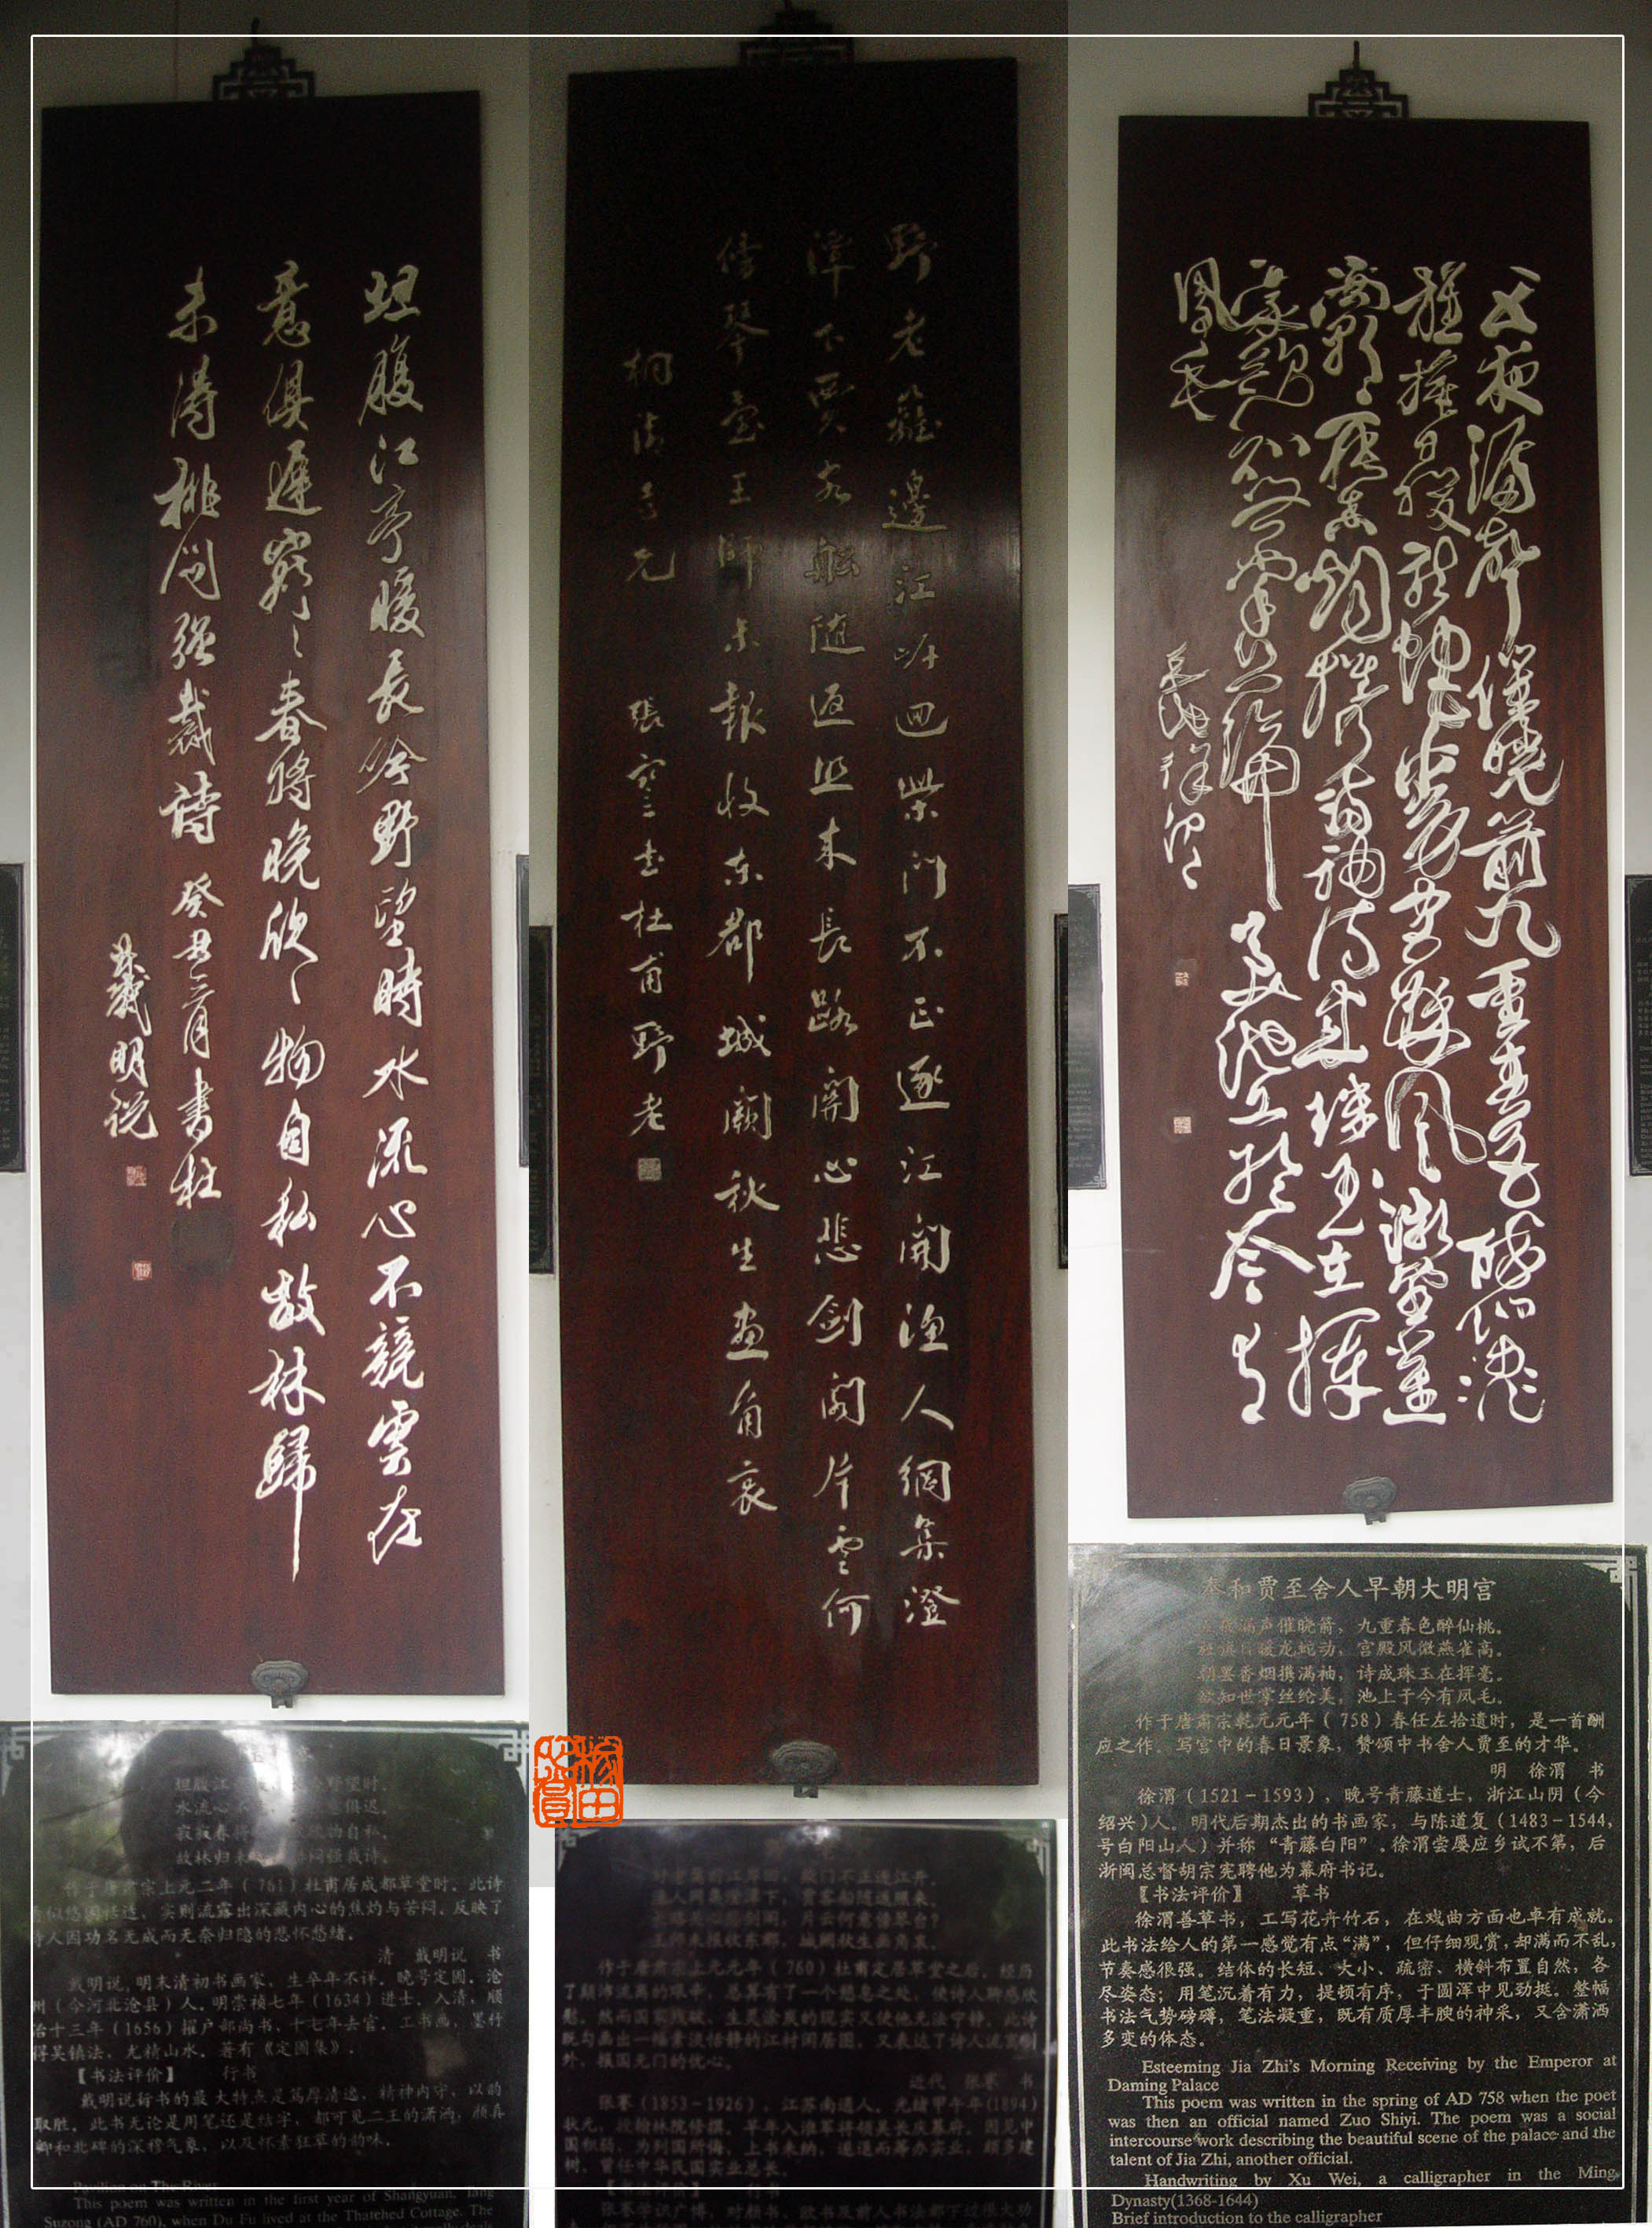 坦腹江亭暖長吟野望時水流心不競雲在
意俱遲寂〻春將晚欣〻物自私故林歸
未得排悶强裁詩 癸丑二月書杜
戴明説
野老籬邊江岸迴柴門不正逐江開漁人網集澄
潭下賈客船随返照來長路關心悲劍閣片雲何
傍琴臺王師未報收東郡城闕秋生畫角哀
張謇書杜甫野老
五夜漏聲催曉箭九重春色醉仙桃
旌旗日暖龍蛇動宮殿風微燕雀
高朝罷香烟携滿袖詩成珠玉在揮
毫欲知世掌絲綸美池上於今有
鳳毛
作于唐肃宗上元二年(761)杜甫居成都草堂时。此诗
实则流露出深藏内心的焦灼与苦闷。反映了
人因功名无成而无奈归隐的悲怀愁绪。
清 戴明说 书
戴明说,明末清初书画家。生卒年不详。晚号定圃。沧
州(今河北沧县)人。明崇祯七年(1634)进士。入清,顺
治十三年(1656)擢户部尚书、十七年去官。工书画,墨竹
得吴镇法、尤精山水。著有《定圃集》。
【书法评价】 行书
戴明说行书的最大特点是笃厚清逸,精神内守、以韵
取胜。此书无论是用笔还是结字,都可见二王的潇洒,颜真
卿和北碑的深穆气象,以及怀素狂草的韵味。
Pavilion on The River
This poem was written in the first year of Shangyuan, Tang
Suzong (AD 760), when Du Fu lived at the Thatched Cottage. The
作于唐肃宗上元元年(760)杜甫定居草堂之后。经历
了颠沛流离的艰辛,总算有了一个憩息之处,使诗人聊感欣
慰。然而国家残破、生灵涂炭的现实又使他无法宁静。此诗
既勾画出一幅素淡恬静的江村闲居图,又表达了诗人流寓剑
外,报国无门的忧心。
近代 张謇 书
张謇(1853-1926),江苏南通人。光绪甲午年(1894)
状元,授翰林院修撰。早年入淮军将领吴长庆幕府。因见中
国积弱,为列国所侮,上书未纳,遂退而筹办实业,颇多建
树。曾任中华民国实业总长。
【书法评价】 行书
张謇学识广博,对颜书、欧书及前人书法都下过很大功
奉和贾至舍人早朝大明宫
五夜漏声催晓箭,九重春色醉仙桃。
旌旗日暖龙蛇动,宫殿风微燕雀高。
朝罢香烟携满袖,诗成珠玉在挥毫。
欲知世掌丝纶美,池上于今有凤毛。
作于唐肃宗乾元元年(758)春任左拾遗时,是一首酬
应之作。写宫中的春日景象,赞颂中书舍人贾至的才华。
明 徐渭 书
徐渭(1521-1593),晚号青藤道士,浙江山阴(今
绍兴)人。明代后期杰出的书画家,与陈道复(1483-1544,
号白阳山人)并称“青藤白阳”。徐渭尝屡应乡试不第,后
浙闽总督胡宗宪聘他为幕府书记。
【书法评价】 草书
徐渭善草书,工写花卉竹石,在戏曲方面也卓有成就。
此书法给人的第一感觉有点“满”,但仔细观赏,却满而不乱,
节奏感很强。结体的长短、大小、疏密、横斜布置自然,各
尽姿态;用笔沉着有力,提顿有序,于圆浑中见劲挺。整幅
书法气势磅礴,笔法凝重,既有质厚丰腴的神采,又含潇洒
多变的体态。
Esteeming Jia Zhi's Morning Receiving by the Emperor at
Daming Palace
This poem was written in the spring of AD 758 when the poet
was then an official named Zuo Shiyi. The poem was a social
intercourse work describing the beautiful scene of the palace and the
talent of Jia Zhi, another official.
Handwriting by Xu Wei, a calligrapher in the Ming
Dynasty(1368-1644)
Brief introduction to the calligrapher